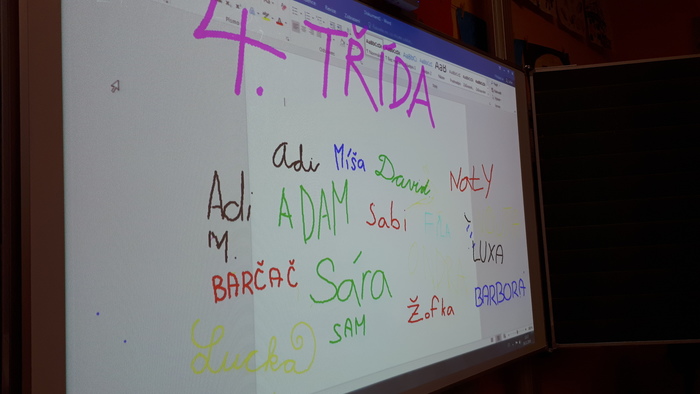 4. TŘÍDA
adi Míša David NatY
Adi M. ADAM Sabi LUXA
BARČAČ Sára Žofka BARBORA
Lucka SAM